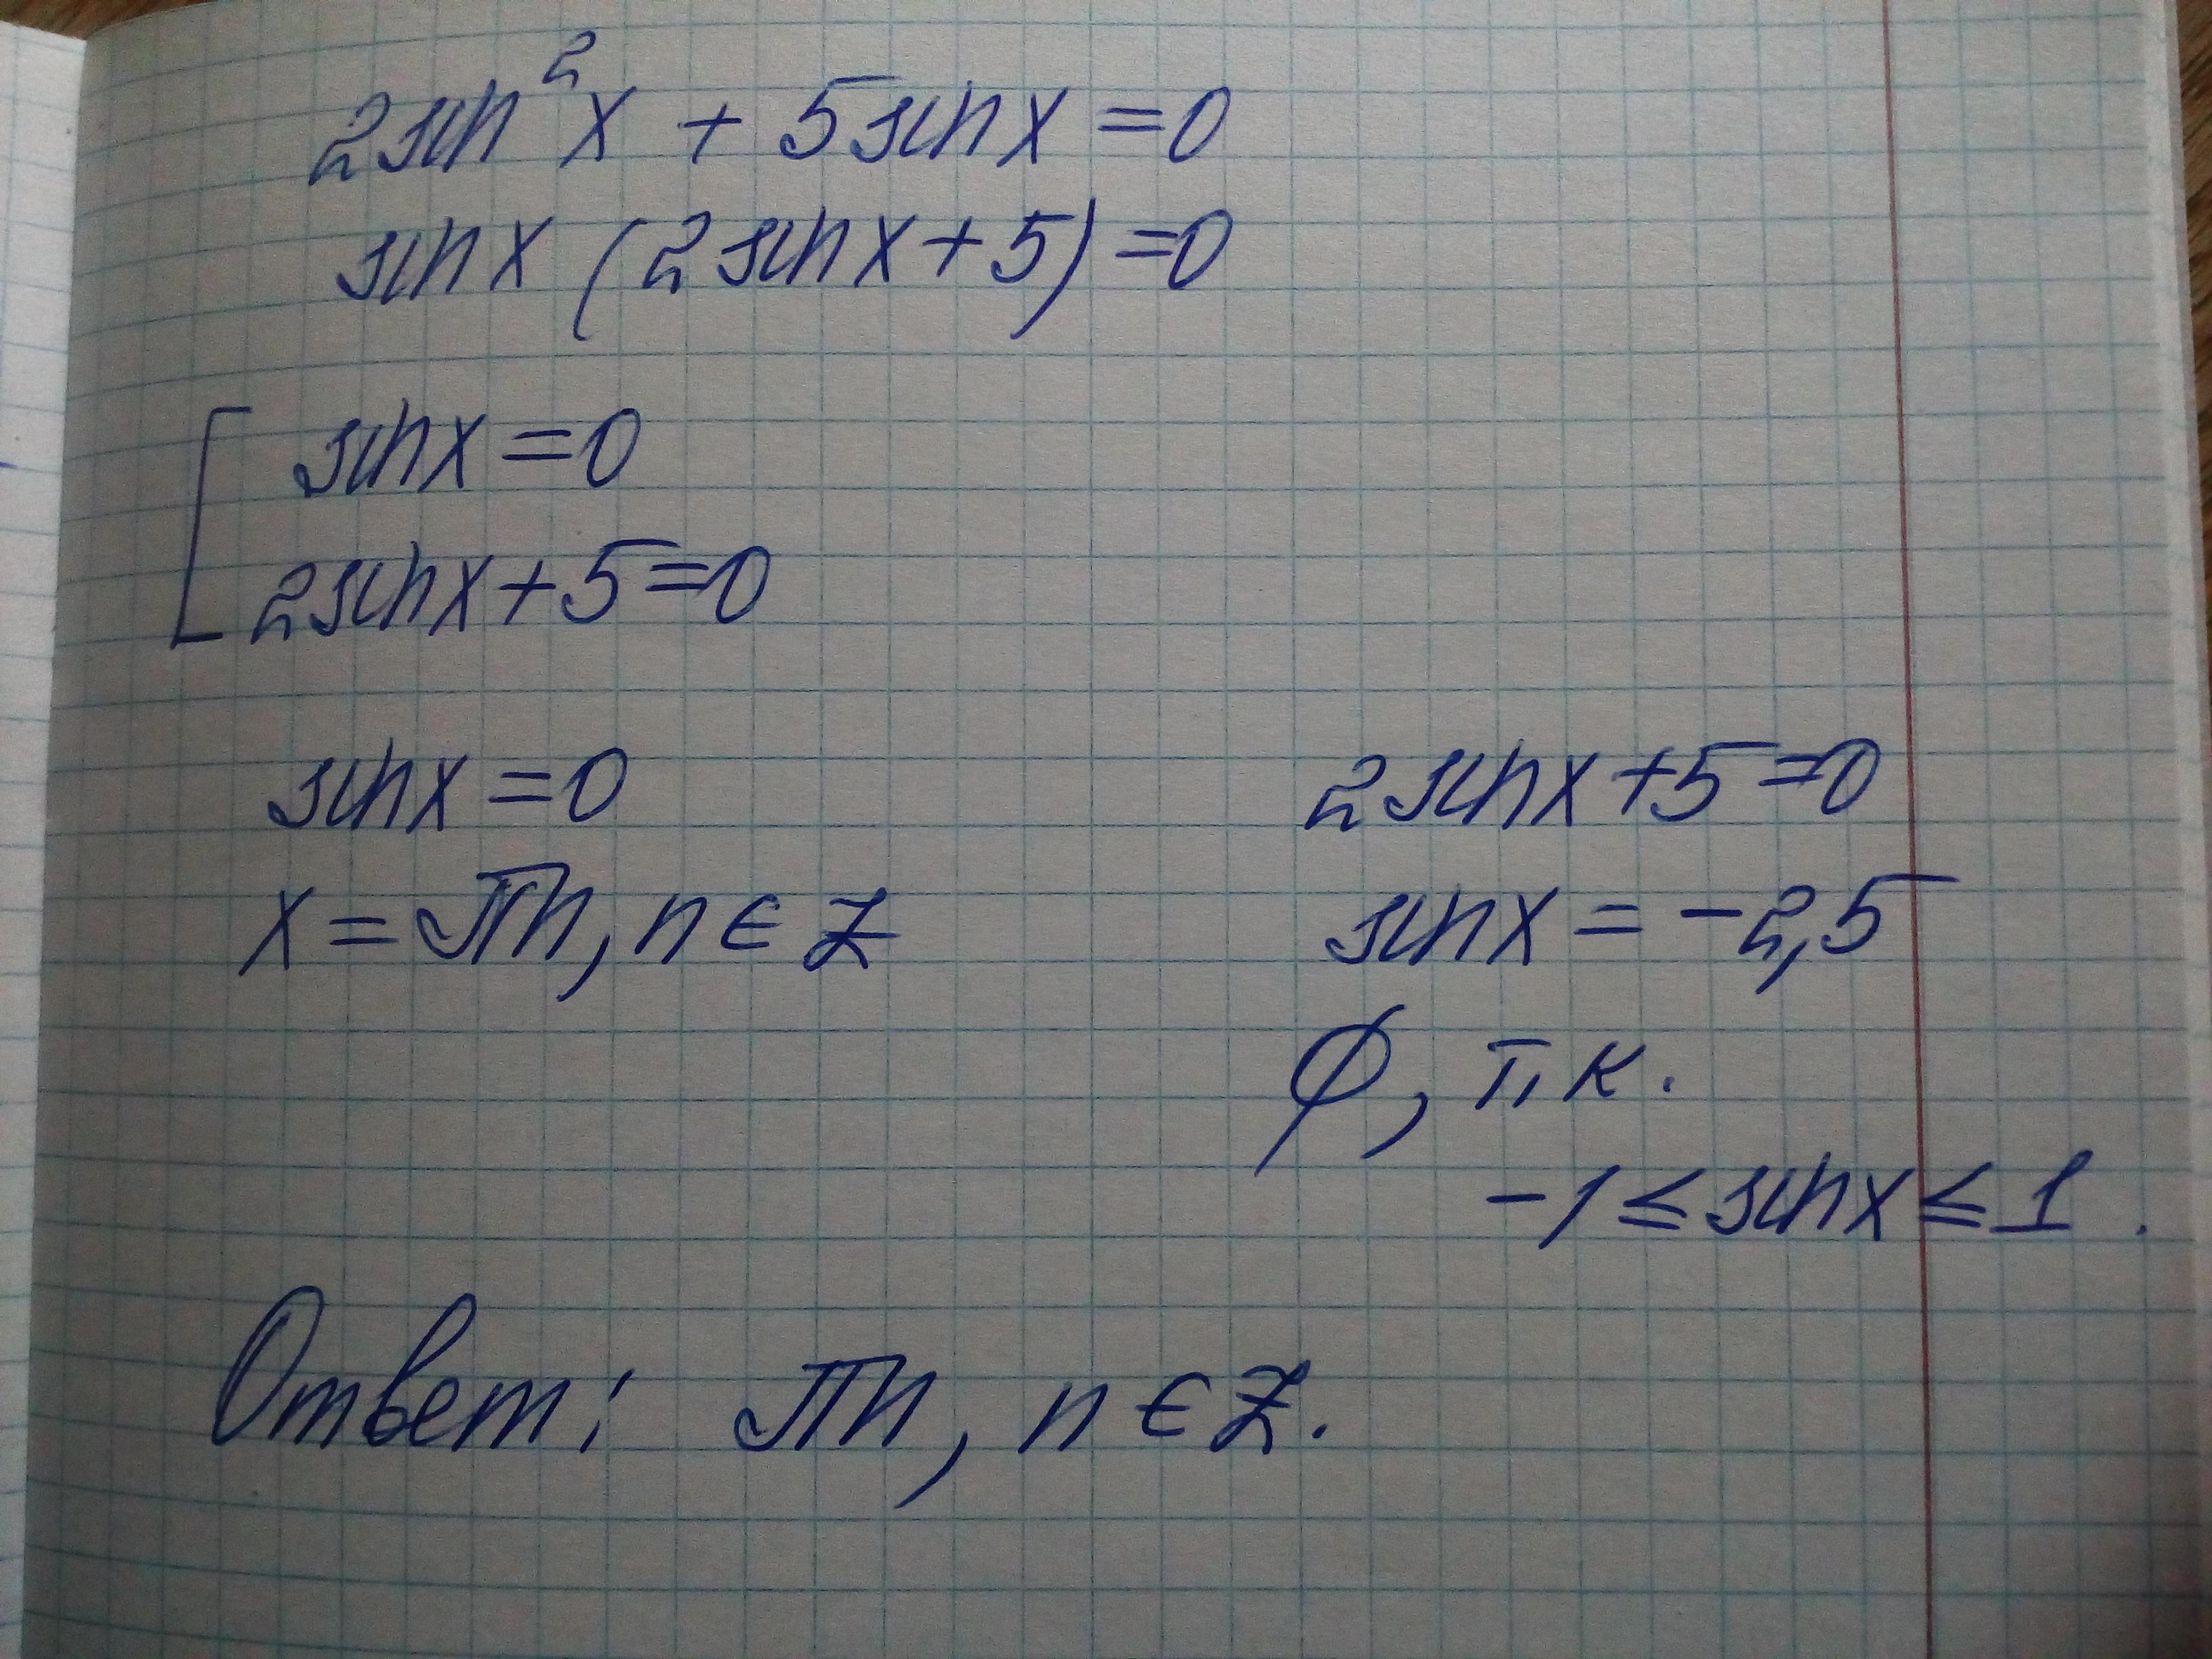 2sin²x + 5sinx = 0
sinx (2sinx + 5) = 0
[ sinx = 0
2sinx + 5 = 0
sinx = 0
x = πn, n ∈ Z
2sinx + 5 = 0
sinx = -2,5
∅, т.к.
-1 ≤ sinx ≤ 1.
Ответ: πn, n ∈ Z.